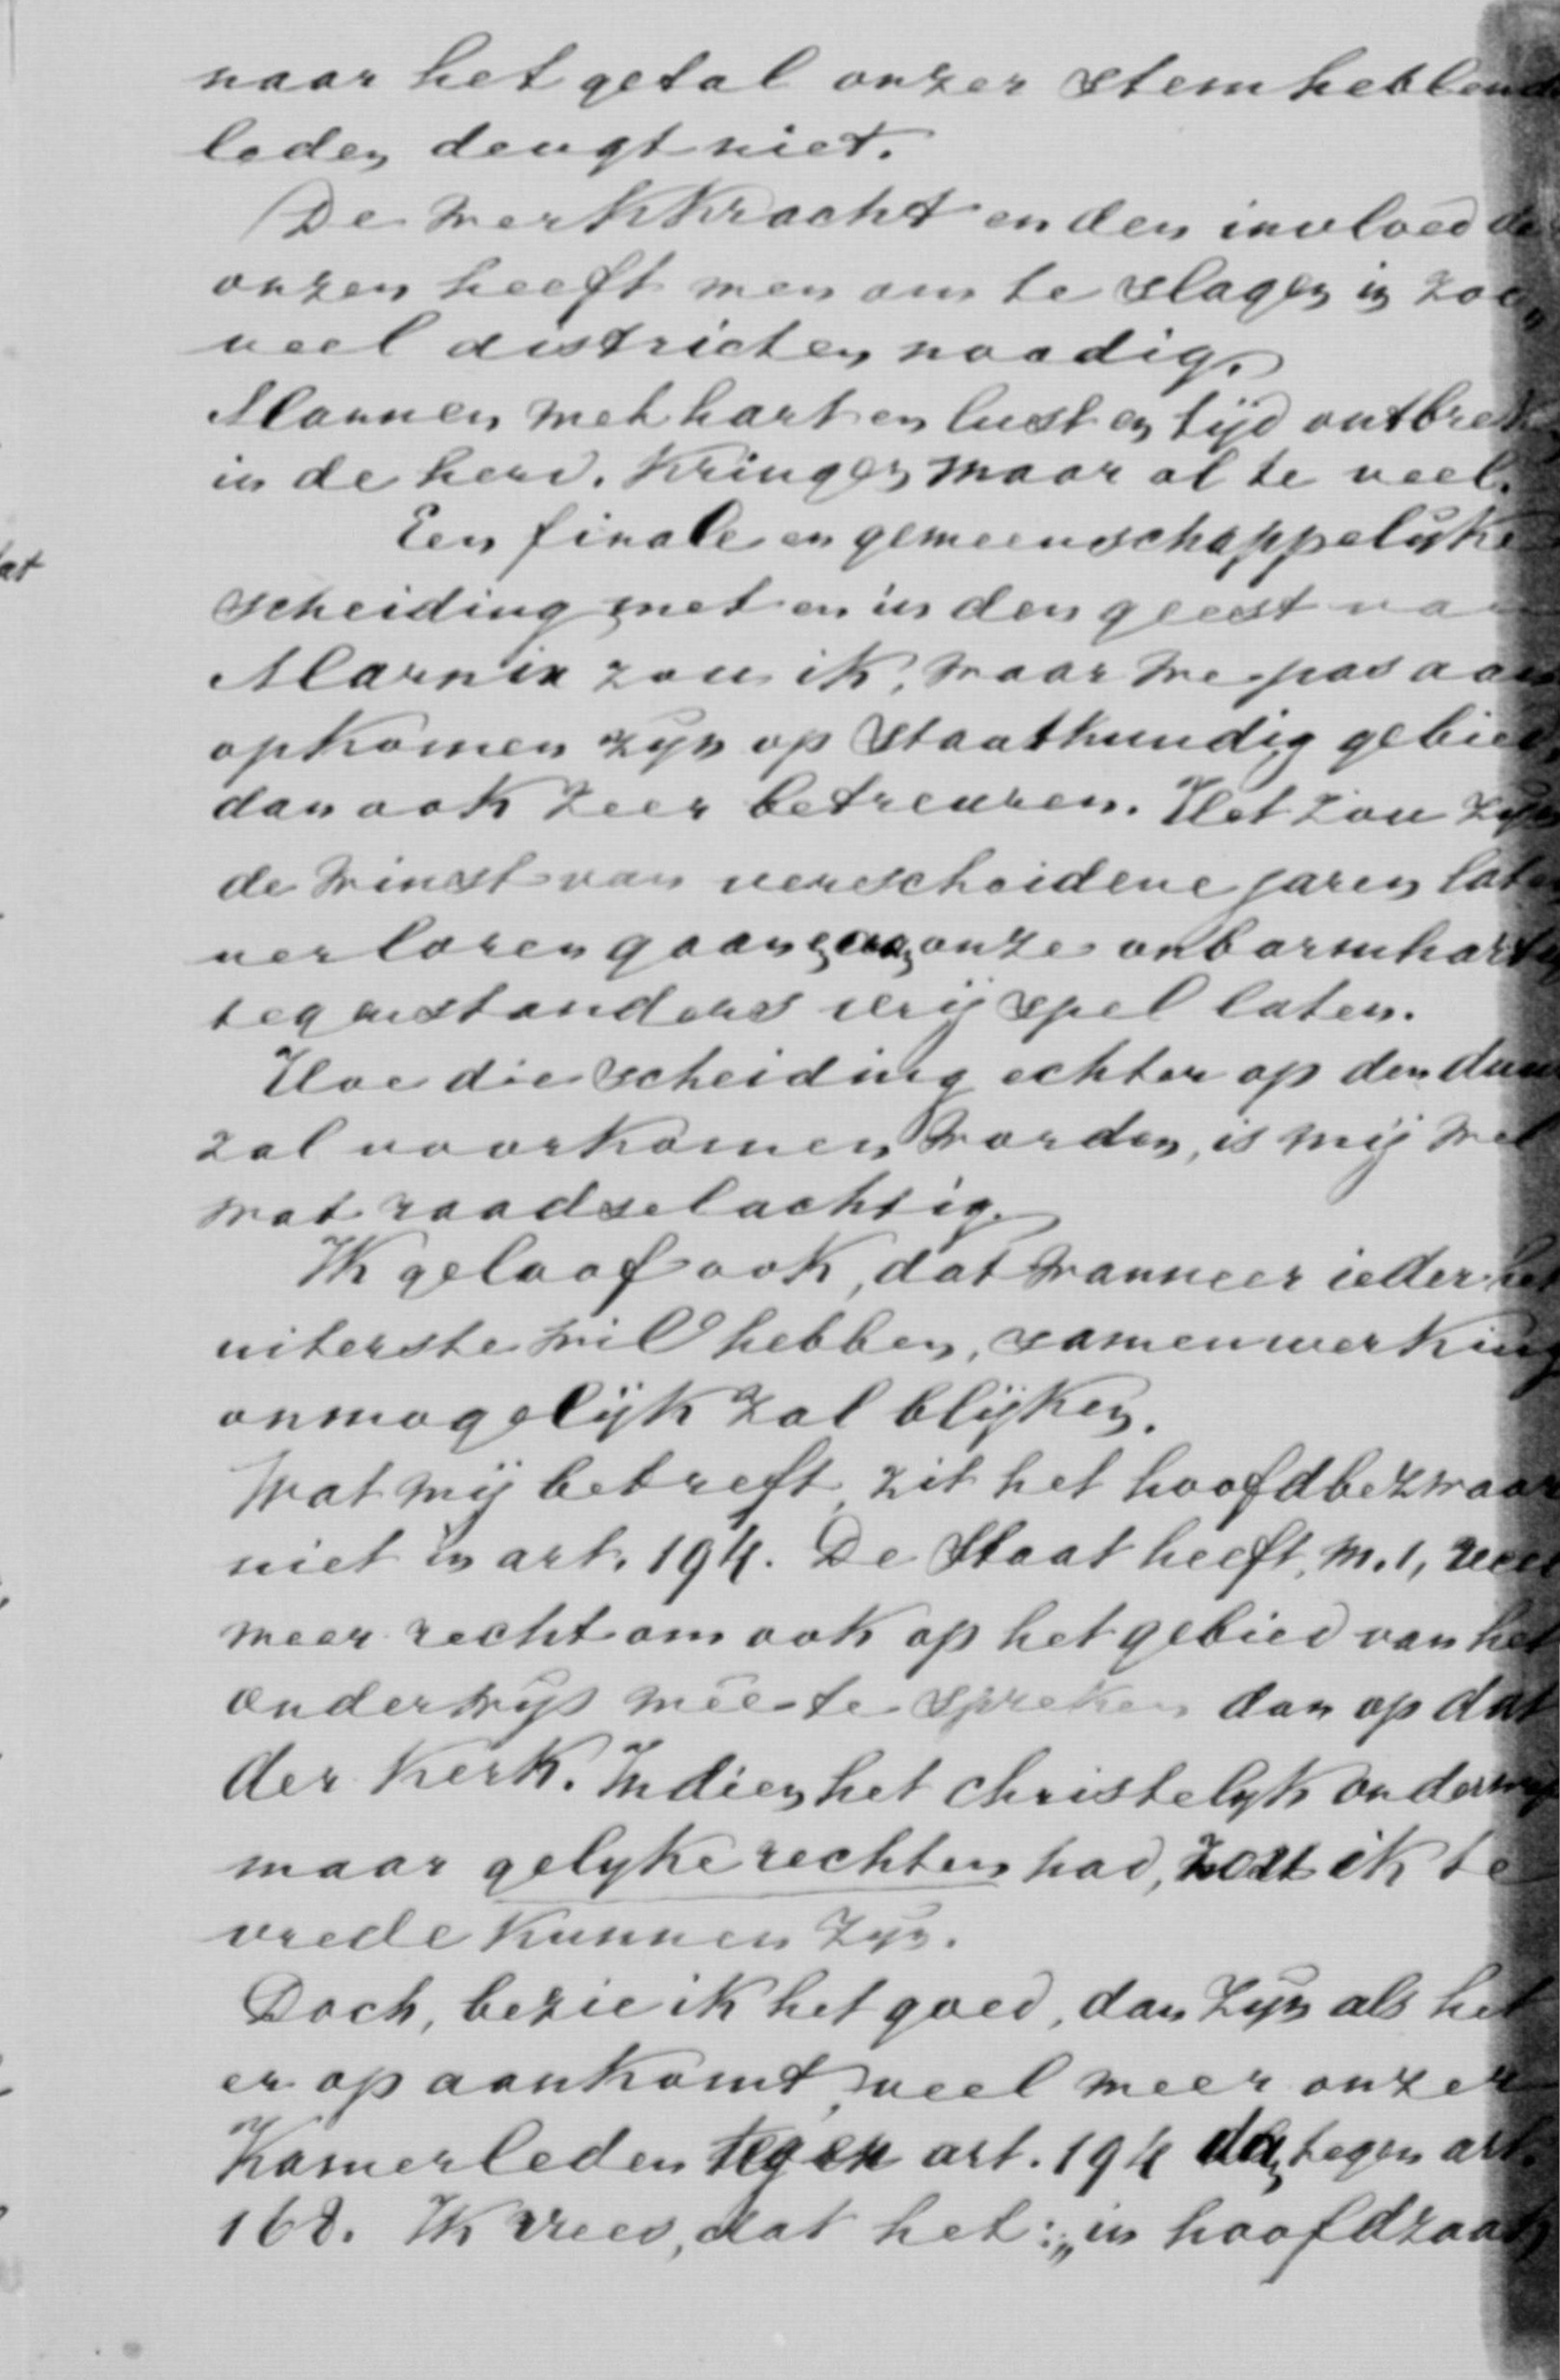 naar het getal onzer stemhebbende
leden deugt niet.
De werkkracht en den invloed der
onzen heeft men om te slagen in zoo„
veel districten noodig.
Mannen met hart en lust en tijd ontbreken
in de herv. kringen maar al te veel.
Een finale en gemeenschappelijke
at
scheiding met en in den geest van
Marnix zou ik, waar we pas aan
opkomen zijn op staatkundig gebied,
dan ook zeer betreuren. Het zou zijn
de winst van verscheidene jaren laten
verloren gaan en aan onze onbarmhartige
tegenstanders vrij spel laten.
Hoe die scheiding echter op den duur
zal voorkomen worden, is mij wel
wat raadselachtig.
Ik geloof ook, dat wanneer ieder het
uiterste wil hebben, samenwerking
onmogelijk zal blijken.
Wat mij betreft, zit het hoofdbezwaar
niet in art. 194. De Staat heeft, m. i, veel
meer recht om ook op het gebied van het
onderwijs mêe te spreken dan op dat
der kerk. Indien het christelijk onderwijs
maar gelijke rechten had, zou ik te
vrede kunnen zijn.
Doch, bezie ik het goed, dan zijn als het
er op aankomt, veel meer onzer
Kamerleden tegen art. 194 dan tegen art.
168. Ik vrees, dat het: „in hoofdzaak